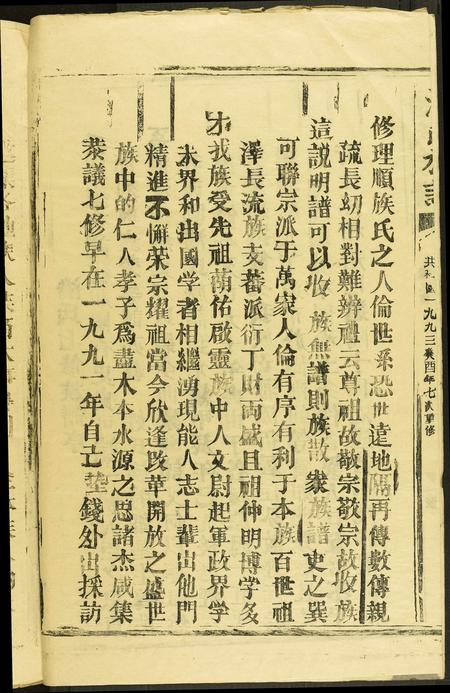 修理順族氏之人倫世系恐世遠地隔再傳數傳親
疏長幼相對難辨禮云尊祖故敬宗敬宗故收族
這說明譜可以收族無譜則族散家族譜史之巽
可聯宗派于萬家人倫有序有利于本族百世祖
澤長流族支蕃派衍丁財両盛且祖仲明博學多
才我族受先祖荫佑啟靈族中人文尉起軍政界学
术界和出國学者相繼湧現能人志士輩出他門
精進不懈荣宗耀祖當今欣逢改革開放之盛世
族中的仁人孝子爲盡木本水源之思諸杰咸集
叅議七修早在一九九一年自亡墊錢外出採訪
一九九三癸酉年七次重修